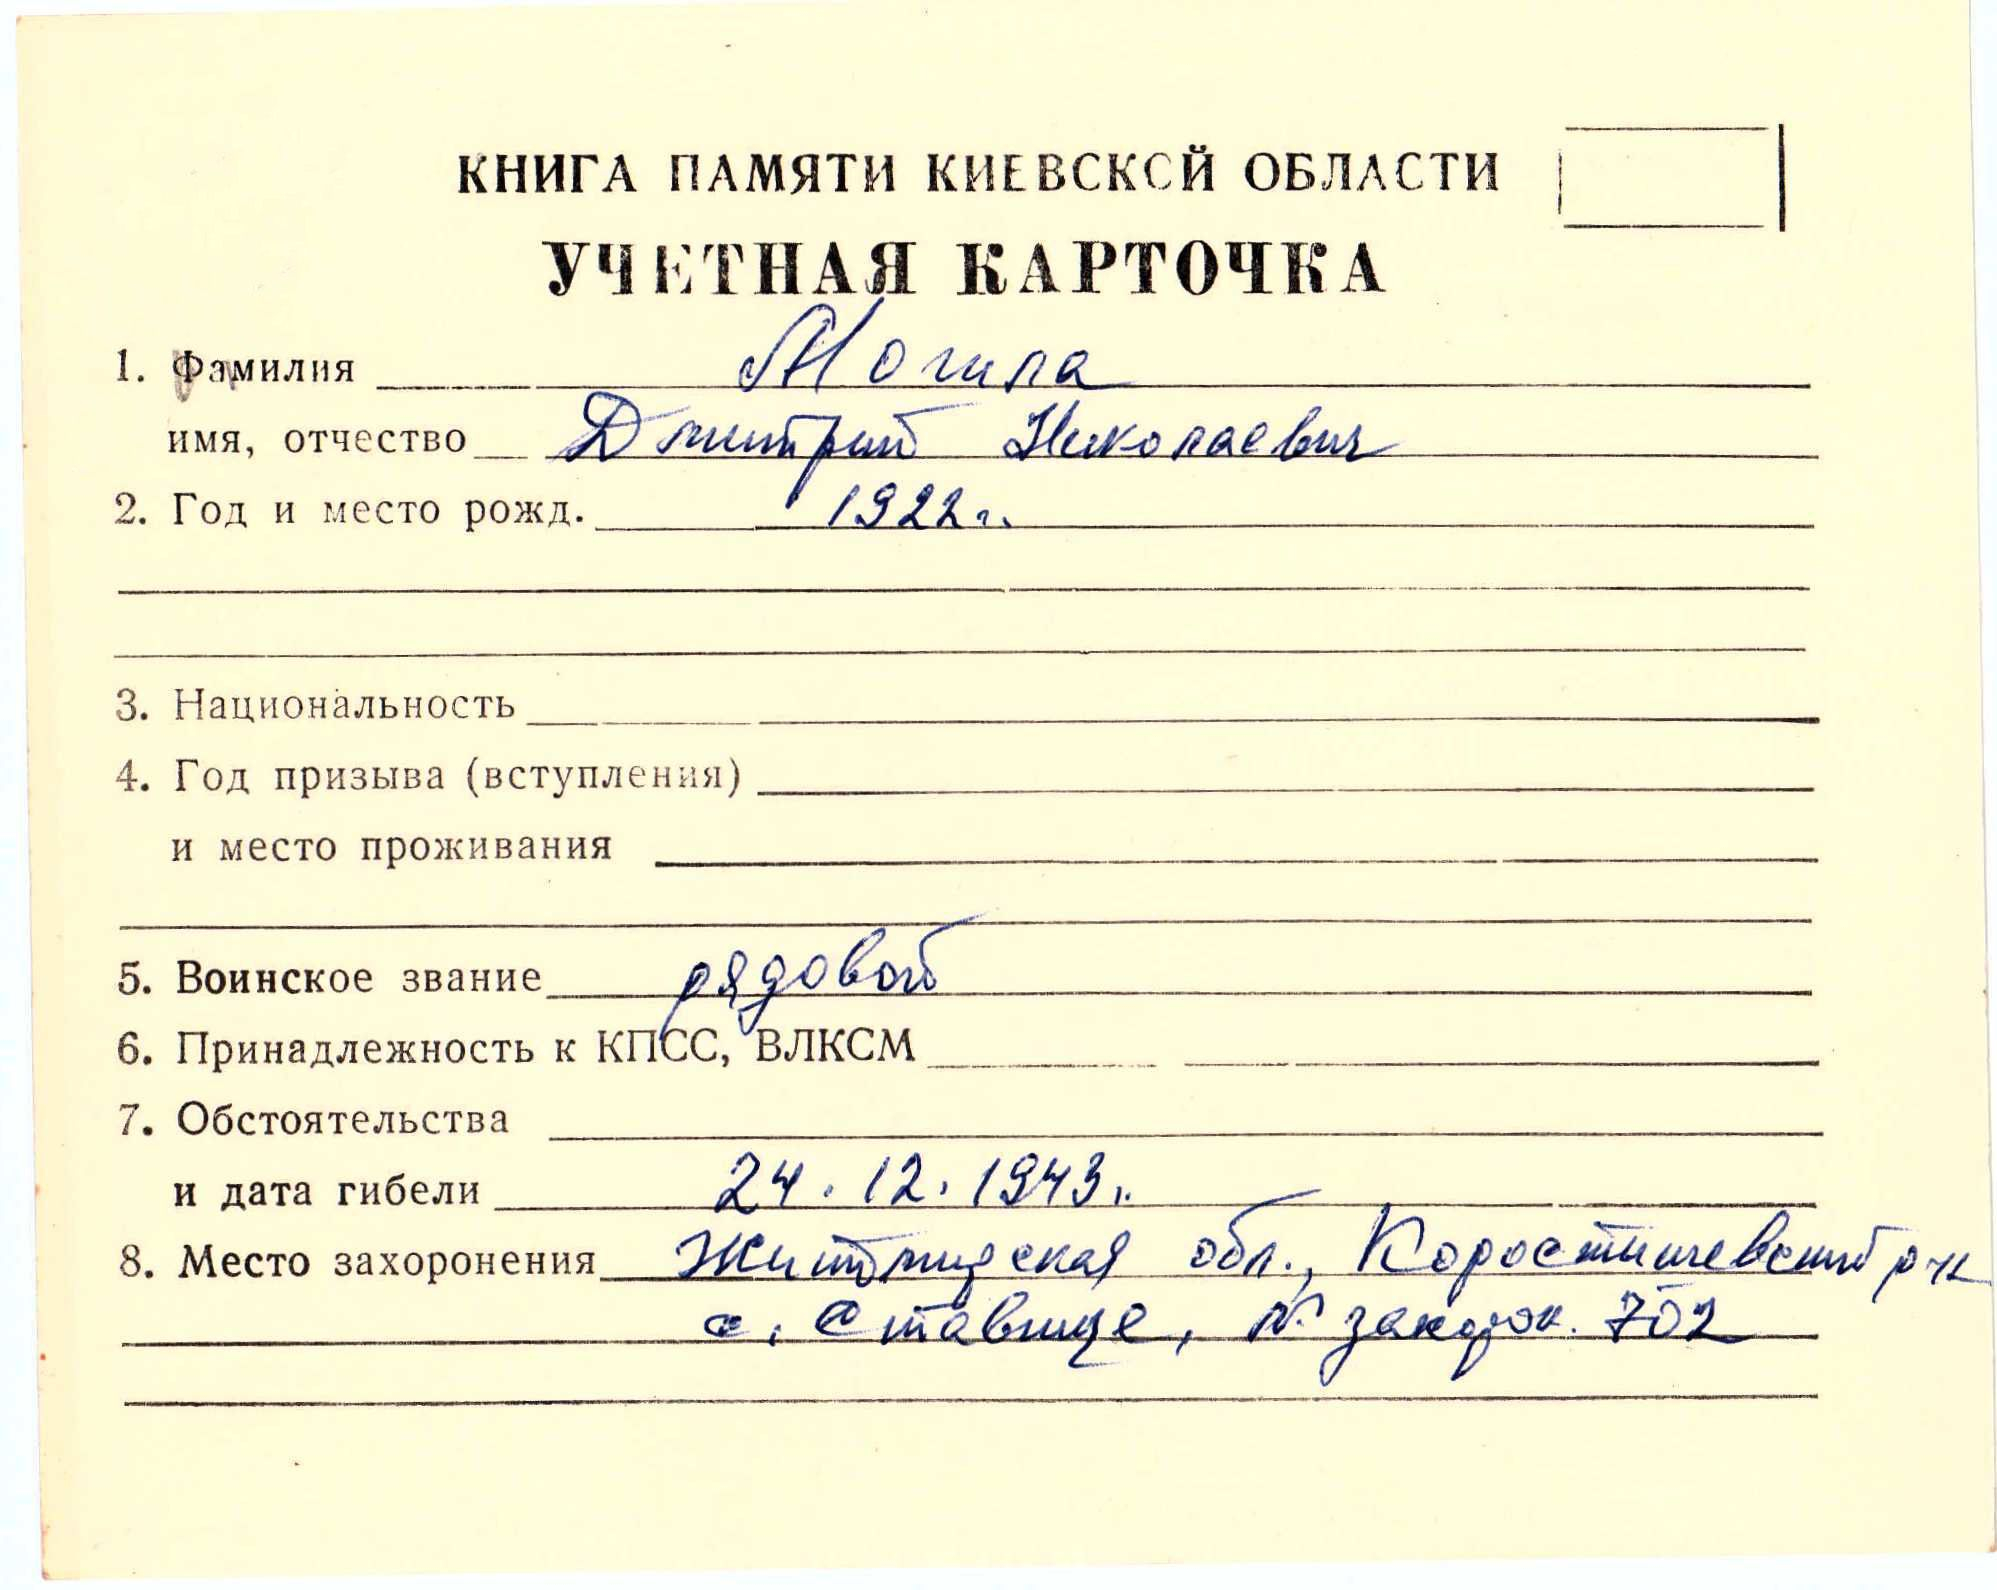 КНИГА ПАМЯТИ КИЕВСКОЙ ОБЛАСТИ
УЧЕТНАЯ КАРТОЧКА
1. Фамилия Могила
имя, отчество Дмитрий Николаевич
2. Год и место рожд. 1922 г.
3. Национальность
4. Год призыва (вступления)
и место проживания
5. Воинское звание рядовой
6. Принадлежность к КПСС, ВЛКСМ
7. Обстоятельства
и дата гибели 24.12.1943 г.
8. Место захоронения Житомирская обл., Коростышевский р-н
с. Ставище, № захорон. 702